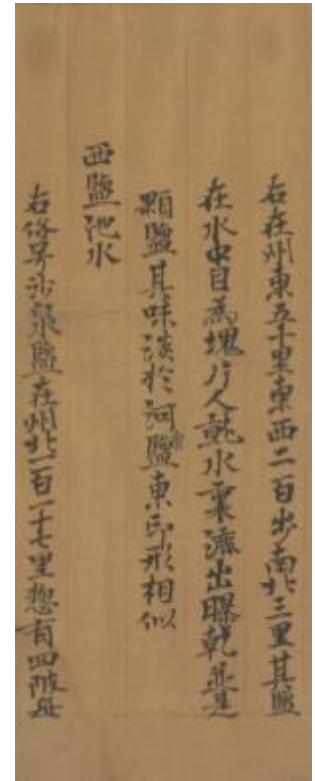 右在州東五十里東西二百步南北三里其鹽
在水中自為塊片人就水裏漉出曝乾並是
顆鹽其味淡於河鹽東印形相似
西鹽池水
右俗号沙泉鹽在州北一百一十七里惣有四陂每